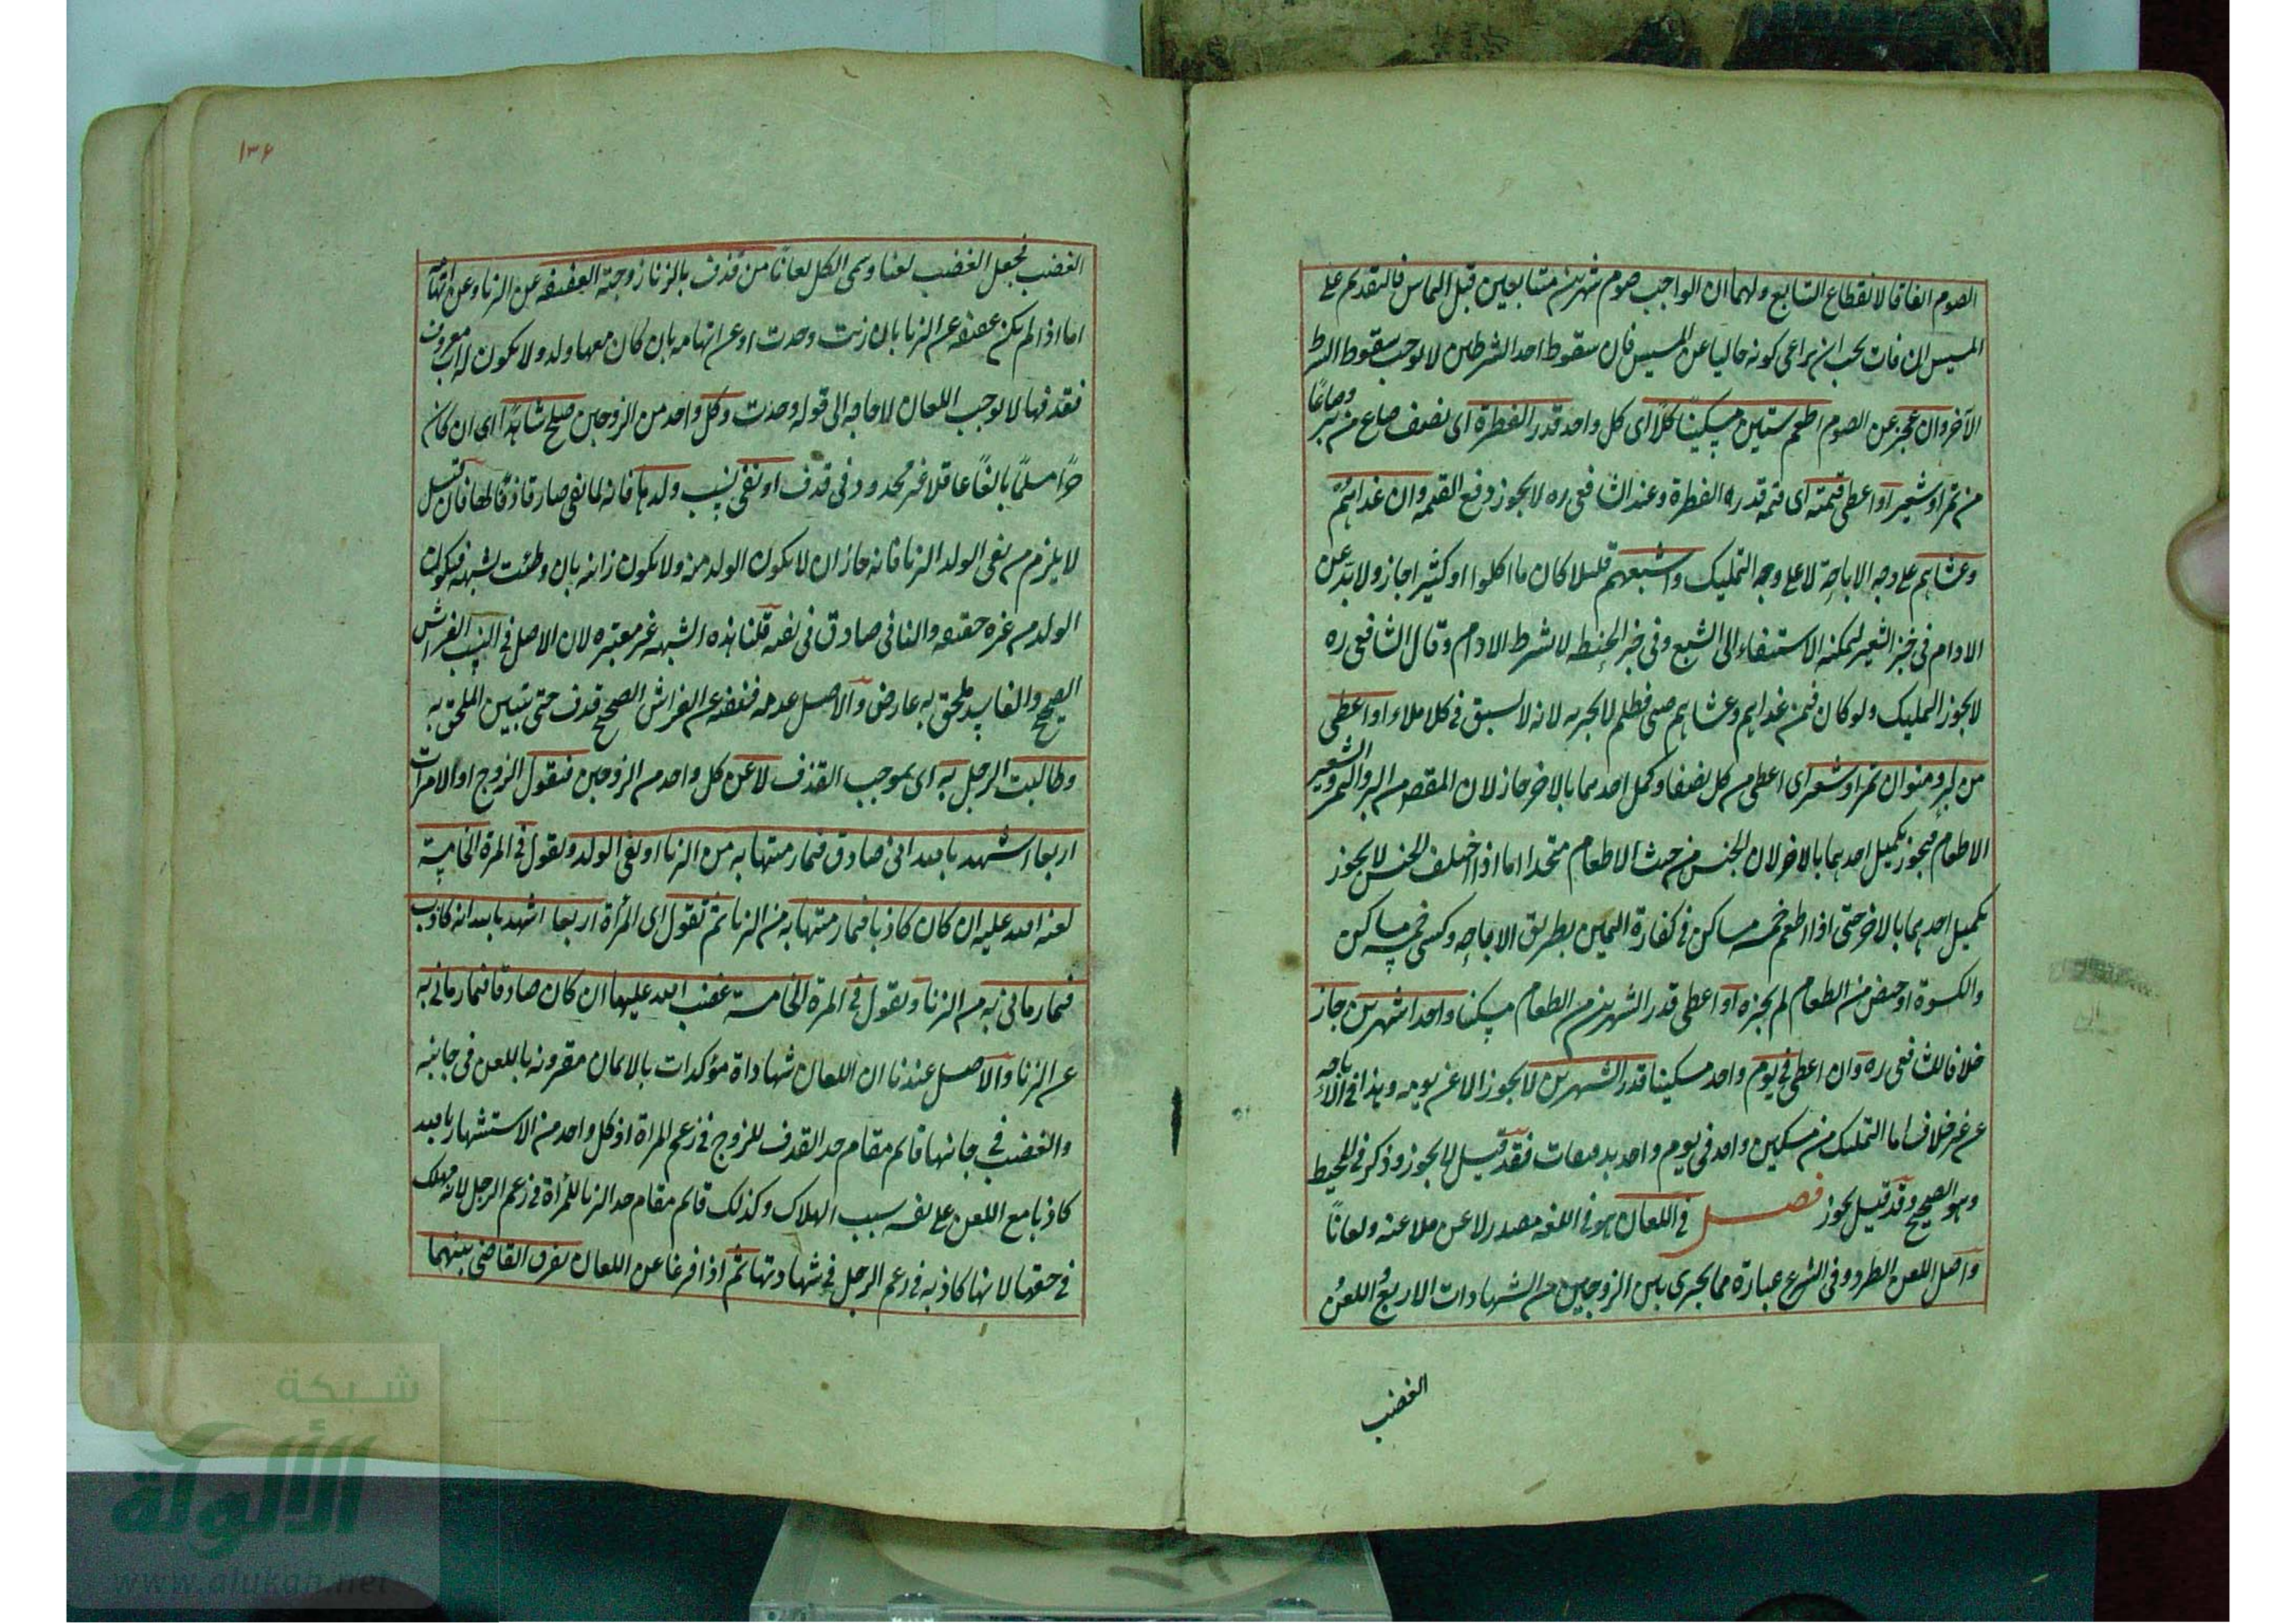 الصوم اتفاقا لانقطاع التتابع ولهما ان الواجب صوم شهرين متتابعين قبل التماس فالتقديم على
المسيس ان فات يجب ان يراعى كونه خاليا عن المسيس فان سقوط احد الشرطين لا يوجب سقوط الشرط
الآخر وان عجز عن الصوم اطعم ستين مسكينًا كلًا اى كل واحد قدر الفطرة اى نصف صاع من بر وصاعًا
من تمر او شعير او اعطى قيمته اى قيمة قدر الفطرة وعند الشافعى ره لا يجوز دفع القيمة وان غداهم
وعشاهم على وجه الاباحة لا على وجه التمليك واشبعهم قليلا كان ما اكلوا او كثيرا جاز ولا بد عن
الادام فى خبز الشعير ليمكنه الاستيفاء الى الشبع وفى خبز الحنطه لا يشترط الادام وقال الشافعى ره
لا يجوز الا التمليك ولو كان فيمن غداهم وعشاهم صبى فطيم لا يجزيه لانه لا يستوفى كاملا او اعطى
من بر ومنوان تمر او شعير اى اعطى من كل نصفا وكمل احدهما بالاخر جاز لان المقصود من البر والتمر والشعير
الاطعام فيجوز تكميل احدهما بالاخر لان الجنس من حيث الاطعام متحدا اما اذا اختلف الجنس لا يجوز
تكميل احدهما بالاخر حتى اذا اطعم خمسة مساكين فى كفارة اليمين بطريق الاباحة وكسى خمسة مساكين
والكسوة ارخص من الطعام لم يجزه او اعطى قدر الشهرين من الطعام مسكينا واحدا شهرين جاز
خلافا للشافعى ره وان اعطى فى يوم واحد مسكينا قدر الشهرين لا يجوز الا عن يومه وهذا فى الاباحة
من غير خلاف اما التمليك من مسكين واحد فى يوم واحد بدفعات فقد قيل لا يجوز وذكر فى المحيط
وهو الصحيح وقد قيل يجوز فصل فى اللعان هو فى اللغه مصدر لاعن ملاعنه ولعانًا
واصل اللعن الطرد وفى الشرع عبارة مما يجرى بين الزوجين من الشهادات الاربع واللعن
الغضب
١٣٦
الغضب فجعل الغضب لعنا وسمى الكل لعانًا من قذف بالزنا زوجته العفيفه عن الزنا وعن اتهامه
اما اذا لم يكن عفيفه عن الزنا بان زنت وحدت او عن اتهامه بان كان معها ولد ولا يكون له اب معروف
فقذفها لا يوجب اللعان لا حاجه الى قوله وحدت وكل واحد من الزوجين صلح شاهدًا اى ان كان
حرًا مسلمًا بالغًا عاقلا غير محدود فى قذف او نفى نسب ولدها فانه لما نفى صار قاذفًا لها فان قيل
لا يلزم من نفى الولد الزنا فانه جاز ان لا يكون الولد منه ولا يكون زانيه بان وطئت بشبهة فيكون
الولد من غيره حقيقه والنافى صادق فى نفيه قلنا هذه الشبهه غير معتبره لان الاصل فى النسب الفراش
الصحيح والفاسد ملحق به عارض والاصل عدمه فنفيه عن الفراش الصحيح قذف حتى يتبين الملحق به
وطالبت الرجل به اى بموجب القذف لاعن كل واحد من الزوجين فيقول الزوج اولا مرات
اربعا اشهد بالله انى صادق فيما رميتها به من الزنا او نفى الولد ويقول فى المرة الخامسة
لعنه الله عليه ان كان كاذبا فيما رميتها به من الزنا ثم تقول اى المرأة اربعا اشهد بالله انه كاذب
فيما رمانى به من الزنا وتقول فى المرة الخامسة غضب الله عليها ان كان صادقا فيما رمانى به
من الزنا والاصل عندنا ان اللعان شهاداة مؤكدات بالايمان مقرونه باللعن فى جانبه
والغضب فى جانبها قائم مقام حد القذف للزوج فى زعم المراة اذ كل واحد من الاستشهاد بالله
كاذبا مع اللعن على نفسه سبب الهلاك وكذلك قائم مقام حد الزنا للمرأة فى زعم الرجل لانه مهلك
فى حقها لانها كاذبه فى زعم الرجل فى شهادتها ثم اذا فرغا عن اللعان يفرق القاضى بينهما
شبكة
الألوكة
www.alukah.net